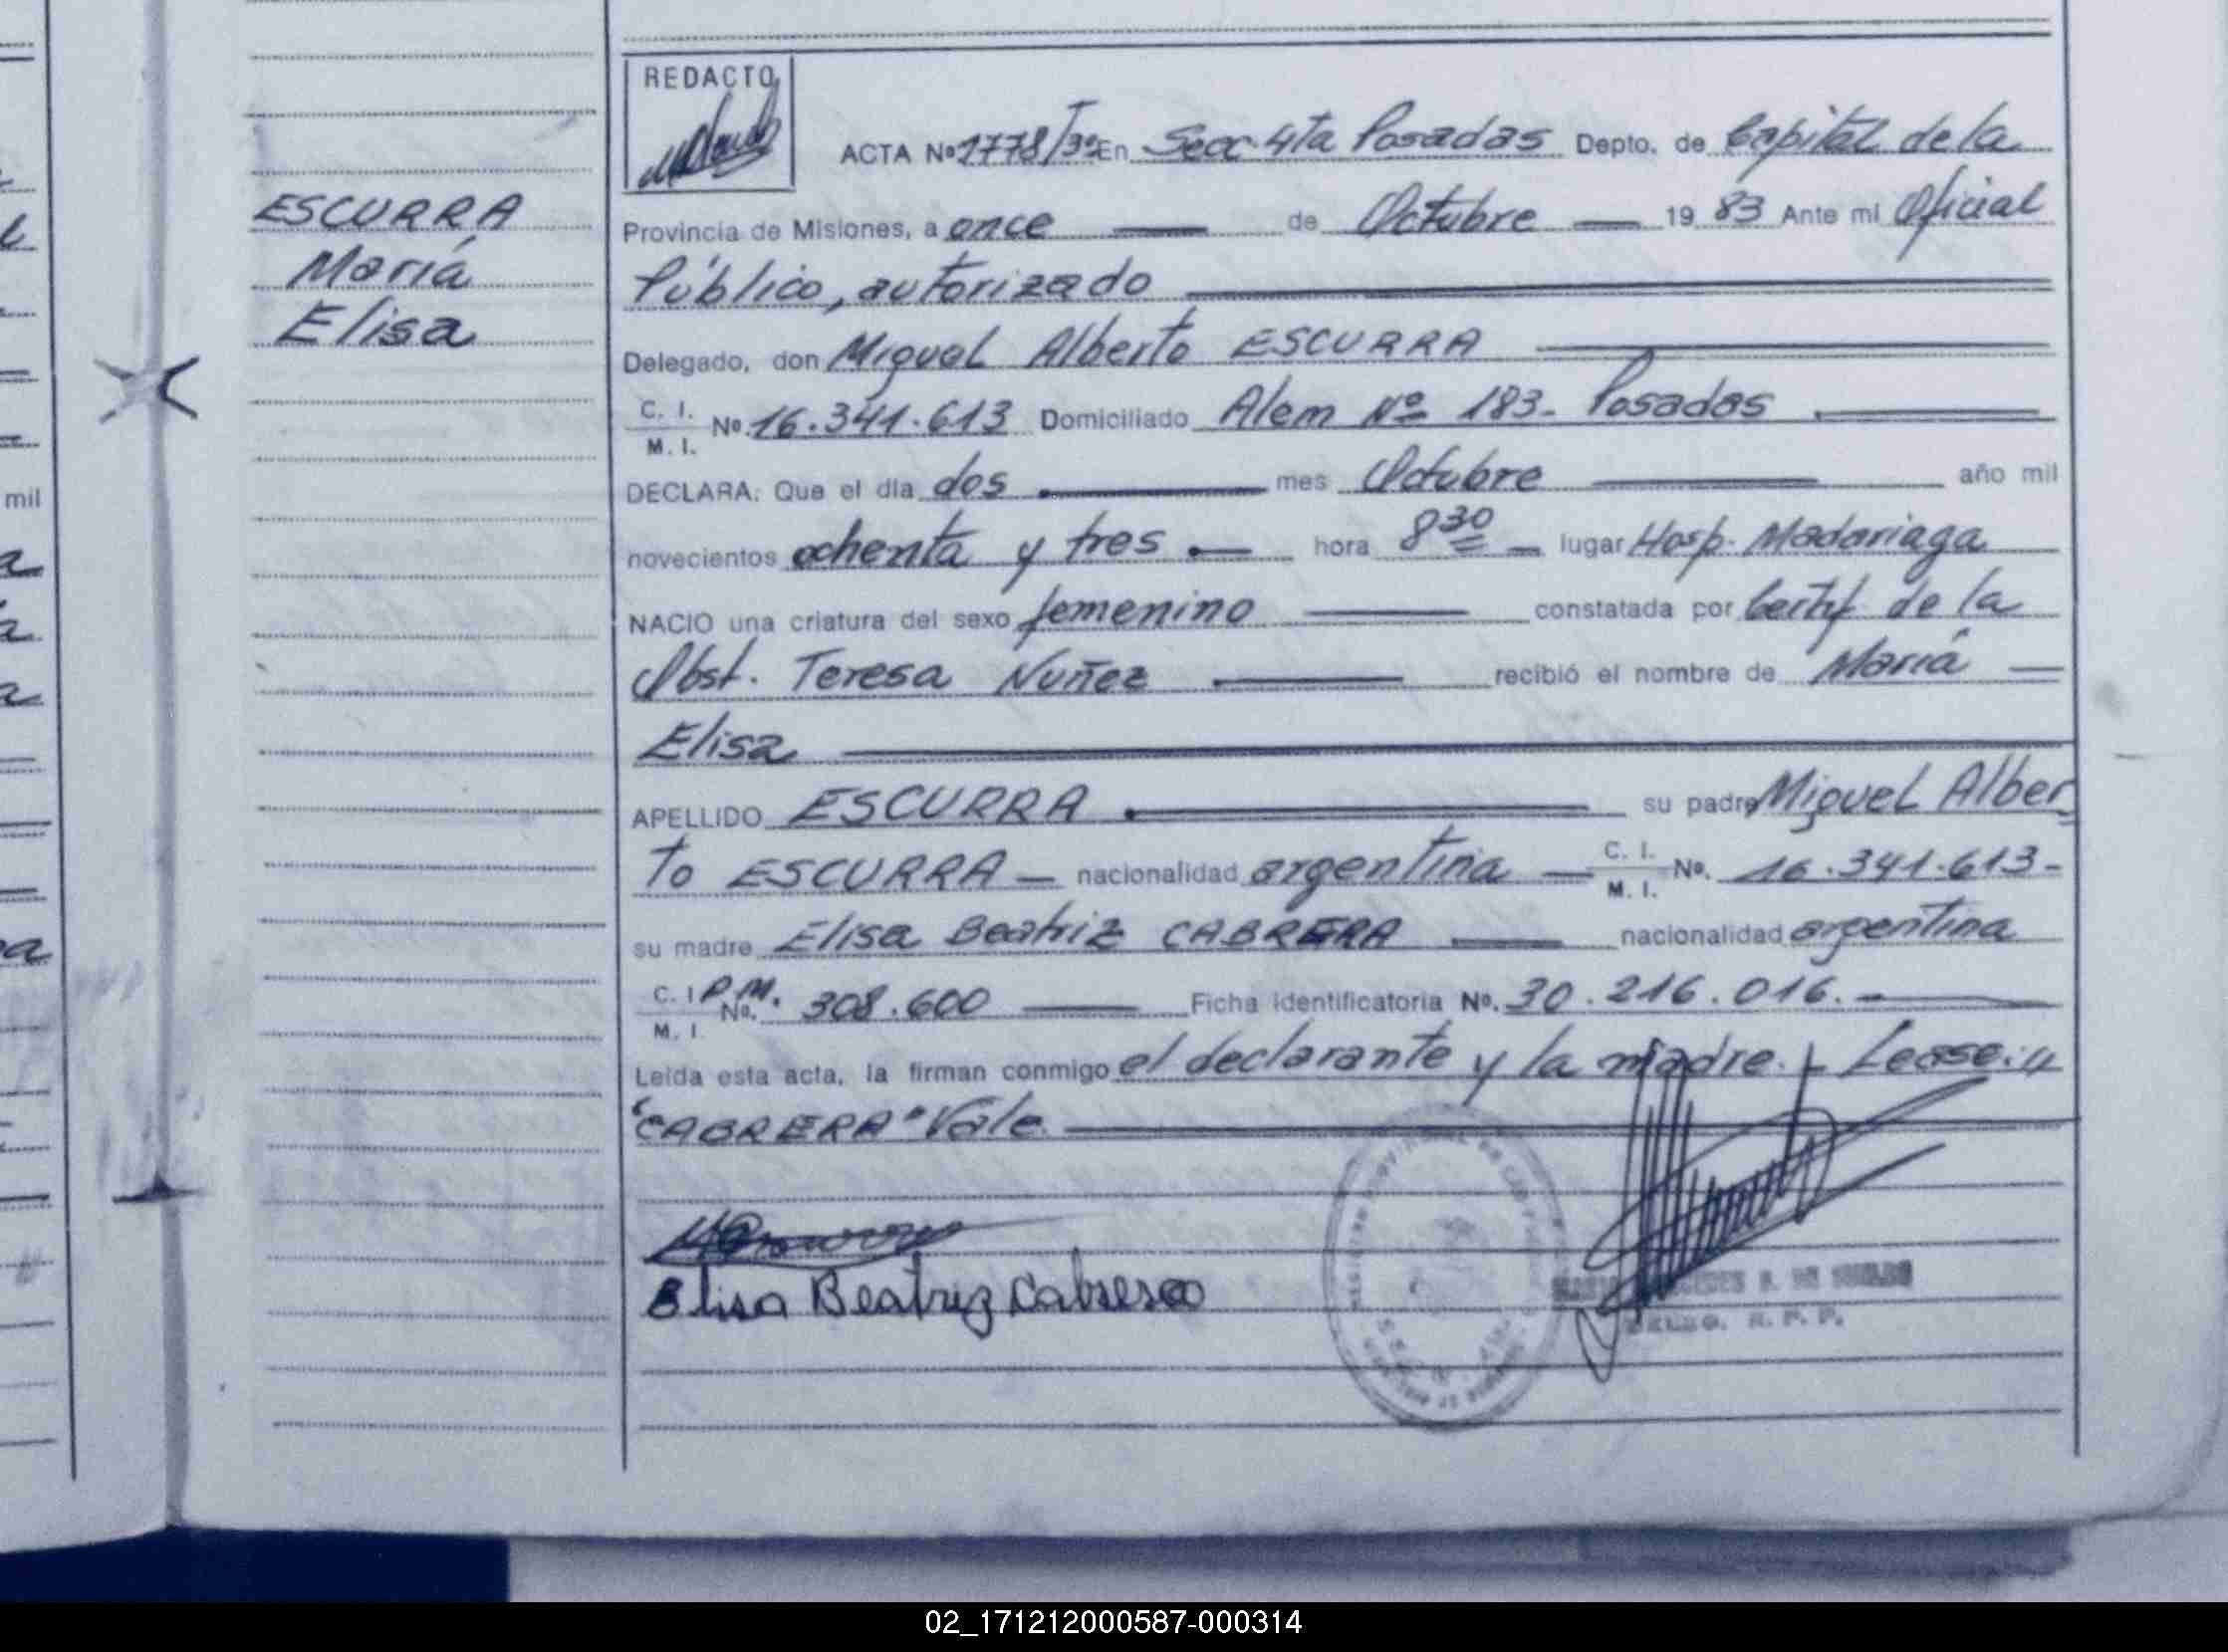 REDACTO
ACTA Nº 1778/3º En Secc. 4ta Posadas Depto. de Capital de la
Provincia de Misiones, a once de Octubre 19 83 Ante mi Oficial
Público, autorizado
Delegado, don Miguel Alberto ESCURRA
C. I.
M. I. Nº. 16.341.613 Domiciliado Alem Nº 183. Posadas
DECLARA: Que el día dos mes Octubre año mil
novecientos ochenta y tres hora 8 30 lugar Hosp. Madariaga
NACIO una criatura del sexo femenino constatada por Certif. de la
Obst. Teresa Nuñez recibió el nombre de María
Elisa
APELLIDO ESCURRA su padre Miguel Alber
to ESCURRA nacionalidad argentina C. I.
M. I. Nº. 16.341.613-
su madre Elisa Beatriz CABRERA nacionalidad argentina
C. I. P.M.
M. I. Nº. 308.600 Ficha identificatoria Nº. 30.216.016.
Leída esta acta, la firman conmigo el declarante y la madre. - Lease:
"CABRERA" Vale.
Elisa Beatriz Cabrera
ESCURRA
María
Elisa
mil
02_171212000587-000314